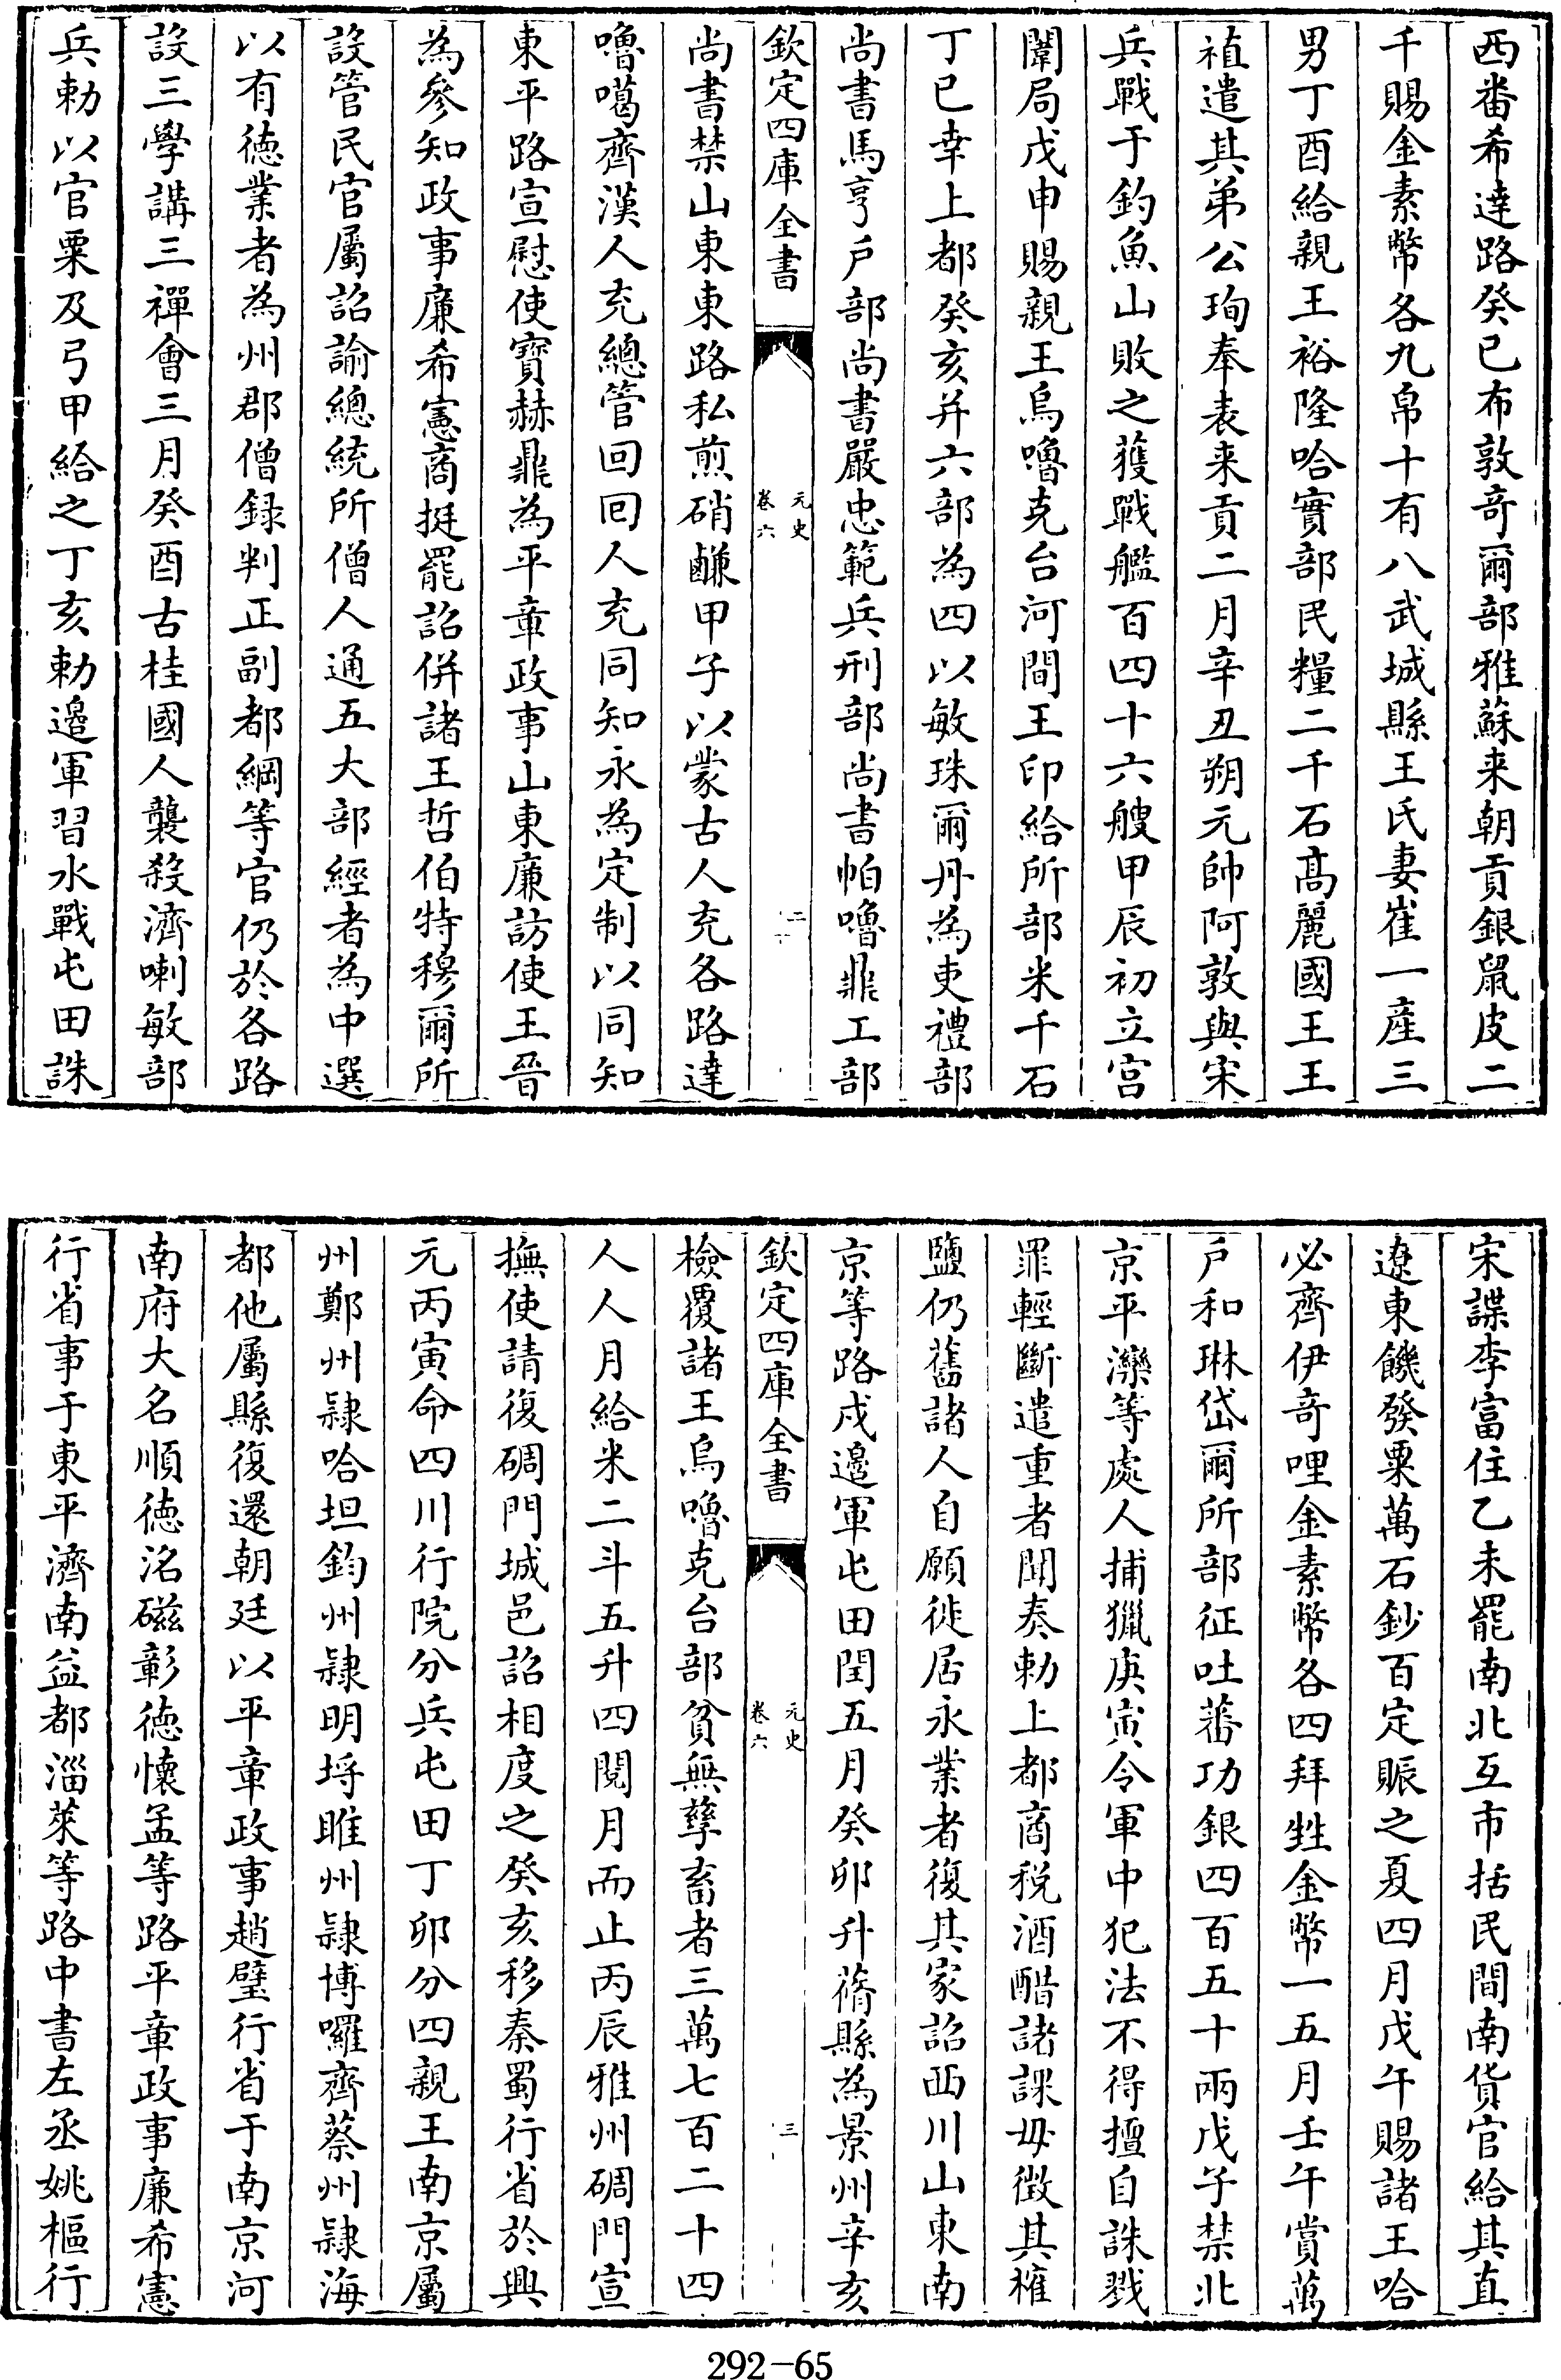 西番希達路癸巳布敦竒爾部雅蘇来朝貢銀鼠皮二
千賜金素幣各九帛十有八武城縣王氏妻崔一産三
男丁酉給親王裕隆哈實部民糧二千石髙麗國王王
禃遣其弟公珣奉表来貢二月辛丑朔元帥阿敦與宋
兵戰于釣魚山敗之獲戰艦百四十六艘甲辰初立宫
闈局戊申賜親王烏嚕克台河間王印給所部米千石
丁巳幸上都癸亥并六部為四以敏珠爾丹為吏禮部
尚書馬亨戸部尚書嚴忠範兵刑部尚書帕嚕鼎工部
欽定四庫全書
元史
卷六
二
尚書禁山東東路私煎硝鹻甲子以蒙古人充各路達
嚕噶齊漢人充總管回回人充同知永為定制以同知
東平路宣慰使寳赫鼎為平章政事山東廉訪使王晉
為參知政事廉希憲商挺罷詔併諸王哲伯特穆爾所
設管民官屬詔諭總統所僧人通五大部經者為中選
以有徳業者為州郡僧録判正副都綱等官仍於各路
設三學講三禪會三月癸酉古桂國人襲殺濟喇敏部
兵勅以官粟及弓甲給之丁亥勅邉軍習水戰屯田誅
宋諜李富住乙未罷南北互市括民間南貨官給其直
遼東饑發粟萬石鈔百定賑之夏四月戊午賜諸王哈
必齊伊竒哩金素幣各四拜甡金幣一五月壬午賞萬
戸和琳岱爾所部征吐蕃功銀四百五十兩戊子禁北
京平灤等處人捕獵庚寅令軍中犯法不得擅自誅戮
罪輕斷遣重者聞奏勅上都商税酒醋諸課毋徴其榷
鹽仍舊諸人自願徙居永業者復其家詔西川山東南
京等路戍邉軍屯田閏五月癸卯升蓨縣為景州辛亥
欽定四庫全書
元史
卷六
三
檢覆諸王烏嚕克台部貧無孳畜者三萬七百二十四
人人月給米二斗五升四閱月而止丙辰雅州碉門宣
撫使請復碉門城邑詔相度之癸亥移秦蜀行省於興
元丙寅命四川行院分兵屯田丁卯分四親王南京屬
州鄭州隷哈坦鈞州隷明埒睢州隷博囉齊蔡州隷海
都他屬縣復還朝廷以平章政事趙璧行省于南京河
南府大名順徳洺磁彰徳懷孟等路平章政事廉希憲
行省事于東平濟南益都淄萊等路中書左丞姚樞行
292-65